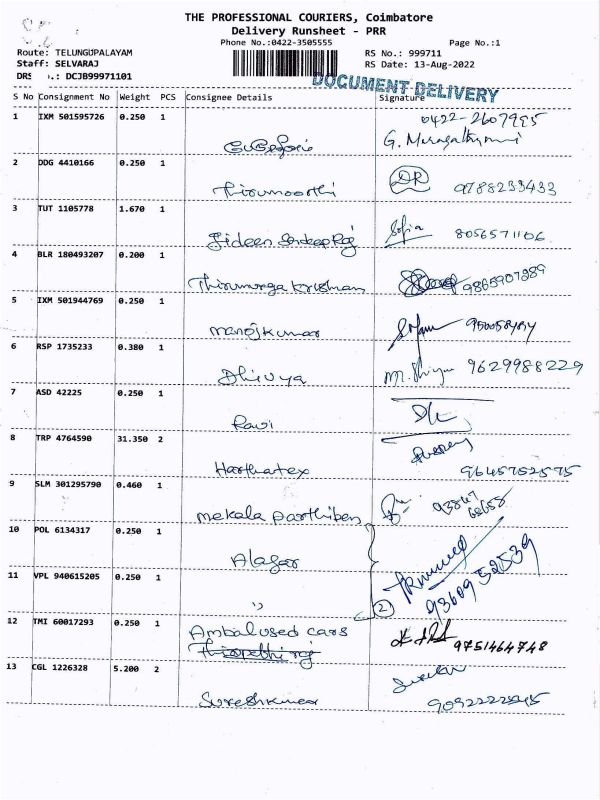 THE PROFESSIONAL COURIERS, Coimbatore
Delivery Runsheet - PRR
Phone No.:0422-3505555
Page No.:1
Route: TELUNGUPALAYAM
RS No.: 999711
Staff: SELVARAJ
RS Date: 13-Aug-2022
DRS .: DCJB99971101
DOCUMENT DELIVERY
S No Consignment No Weight PCS Consignee Details Signature
1 IXM 501595726 0.250 1 0422-2607995
G.
2 DDG 4410166 0.250 1
Thirumoorthi 9788233433
3 TUT 1105778 1.670 1 Sofia
Jideen Sandeep Raj 8056571106
4 BLR 180493207 0.200 1
Thirumurga Krishnan 9865907389
5 IXM 501944769 0.250 1
Manojkumar
6 RSP 1735233 0.380 1
Dhivya 9629988229
7 ASD 42225 0.250 1
Ravi
8 TRP 4764590 31.350 2
Harthatex 9645752575
9 SLM 301295790 0.460 1
mekala Parthiben 93867 60658
10 POL 6134317 0.250 1
Alagar
11 VPL 940615205 0.250 1
,, (2) 9360952539
12 TMI 60017293 0.250 1
Ambal used cars 9751464748
13 CGL 1226328 5.200 2
Sureshkumar